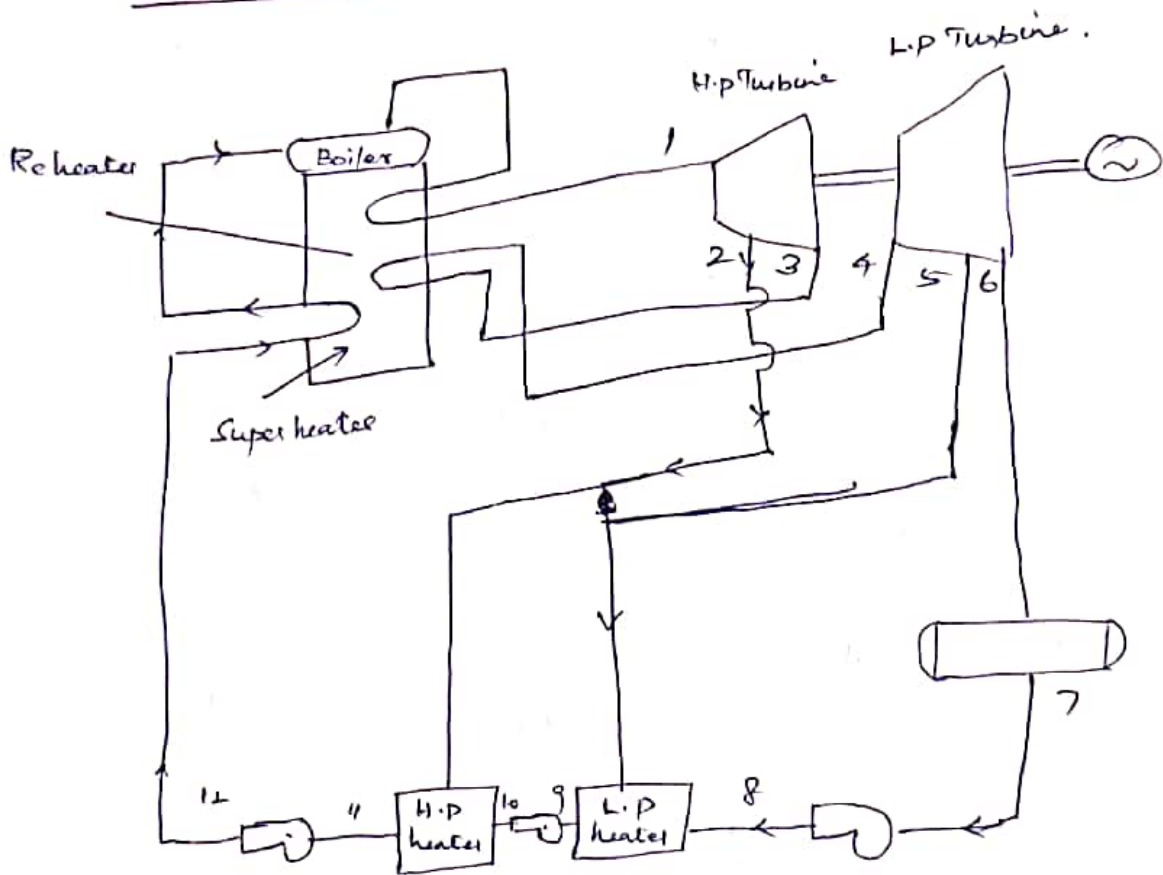 L.P Turbine.
H.P Turbine
Reheater
Boiler
1
2
3
4
5
6
Superheater
7
8
9
10
11
12
H.P
heater
L.P
heater
~